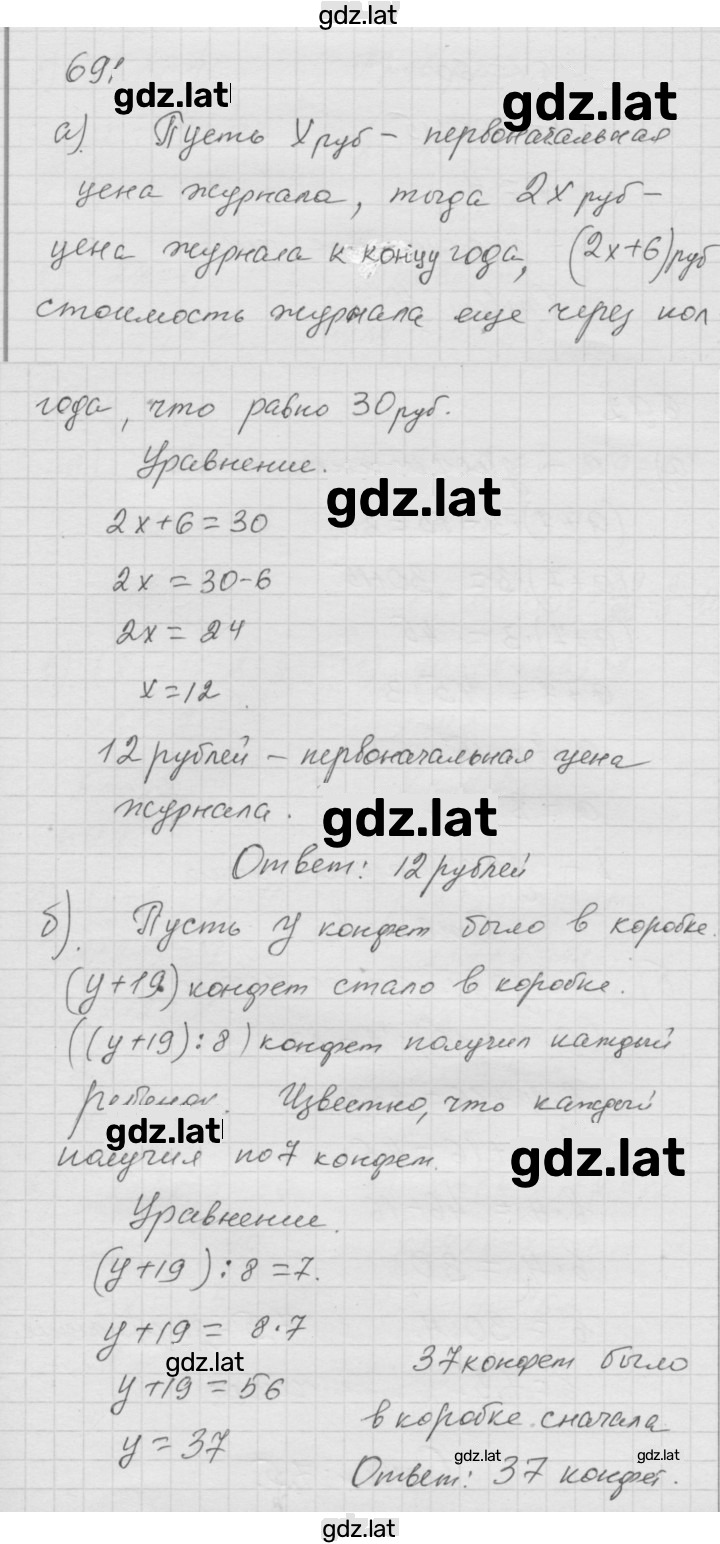 gdz.lat
69!
gdz.lat
gdz.lat
а). Пусть x руб – первоначальная
цена журнала, тогда 2x руб –
цена журнала к концу года, (2x+6) руб
стоимость журнала еще через пол
года, что равно 30 руб.
Уравнение.
gdz.lat
2x+6=30
2x = 30-6
2x = 24
x=12
12 рублей – первоначальная цена
журнала.
gdz.lat
Ответ: 12 рублей
б). Пусть y конфет было в коробке.
(y+19) конфет стало в коробке.
((y+19):8) конфет получил каждый
ребенок. Известно, что каждый
gdz.lat
получил по 7 конфет.
gdz.lat
Уравнение.
(y+19):8=7.
y+19= 8·7
gdz.lat
y+19=56
y=37
37 конфет было
в коробке сначала
gdz.lat
gdz.lat
Ответ: 37 конфет.
gdz.lat